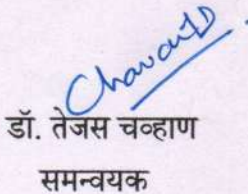 ChavanTD
डॉ. तेजस चव्हाण
समन्वयक